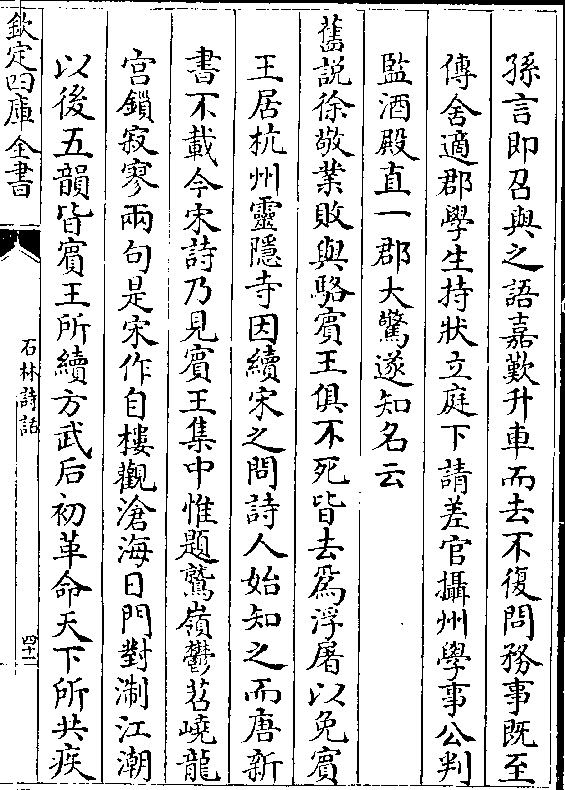 孫言即召與之語嘉歎升車而去不復問務事既至
傳舍適郡學生持狀立庭下請差官攝州學事公判
監酒殿直一郡大驚遂知名云
舊説徐敬業敗與駱賓王俱不死皆去為浮屠以免賓
王居杭州靈隱寺因續宋之問詩人始知之而唐新
書不載今宋詩乃見賓王集中惟題鷲嶺鬱岧嶢龍
宫鎖寂寥兩句是宋作自樓觀滄海日門對淛江潮
以後五韻皆賓王所續方武后初革命天下所共疾
欽定四庫全書
石林詩話
四十二